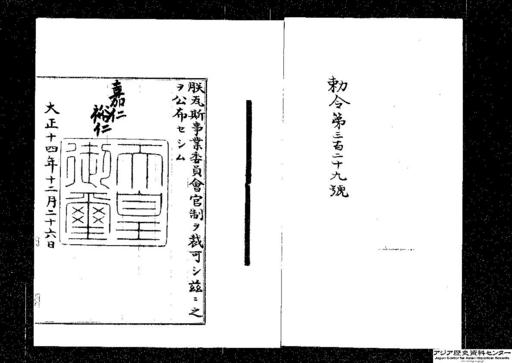 勅令第三百二十九號
朕瓦斯事業委員會官制ヲ裁可シ茲ニ之
ヲ公布セシム
嘉仁
裕仁
天皇
御璽
大正十四年十二月二十六日
アジア歴史資料センター
Japan Center for Asian Historical Records